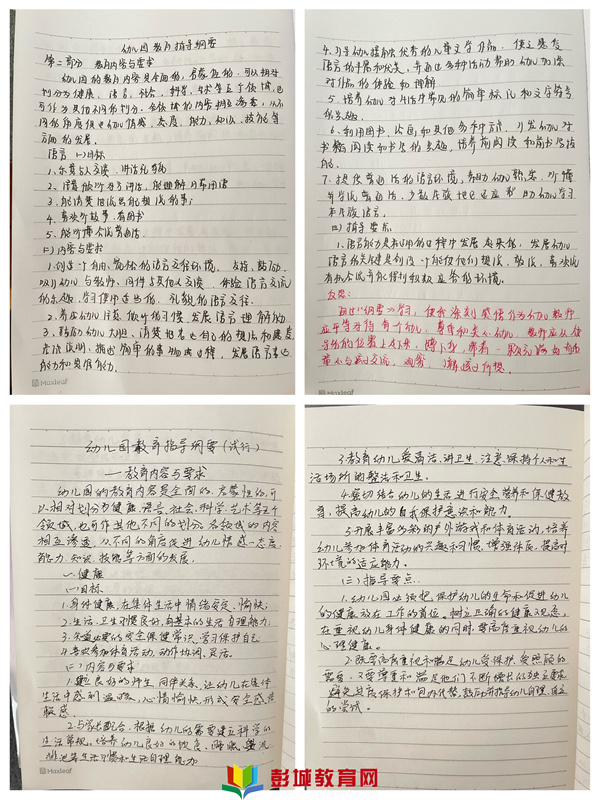 幼儿园教育指导纲要
第二部分 教育内容与要求
幼儿园的教育内容是全面的、启蒙性的,可以相对
划分为健康、语言、社会、科学、艺术等五个领域,也
可作其他不同的划分。各领域的内容相互渗透,从不
同的角度促进幼儿情感、态度、能力、知识、技能等
方面的发展。
语言 (一)目标
1.乐意与人交谈,讲话礼貌
2.注意倾听对方讲话,能理解日常用语
3.能清楚地说出自己想说的事;
4.喜欢听故事、看图书
5.能听懂和会说普通话
(二)内容与要求
1.创造一个自由、宽松的语言交往环境,支持、鼓励、
吸引幼儿与教师、同伴或其他人交谈,体验语言交流
的乐趣,学习使用适当的、礼貌的语言交往。
2.养成幼儿注意倾听的习惯,发展语言理解能力
3.鼓励幼儿大胆、清楚地表达自己的想法和感受,
尝试说明、描述简单的事物或过程,发展语言表达
能力和思维能力。
Maxleaf
4.引导幼儿接触优秀的儿童文学作品,使之感受
语言的丰富和优美,并通过多种活动帮助幼儿加深
对作品的体验和理解
5.培养幼儿对生活中常见的简单标记和文字符号
的兴趣。
6.利用图书、绘画和其他多种方式,引发幼儿对
书籍、阅读和书写的兴趣,培养前阅读和前书写技
能。
7.提供普通话的语言环境,帮助幼儿熟悉、听懂
并学说普通话。少数民族地区还应帮助幼儿学习
本民族语言。
(三)指导要点
1.语言能力是在运用的过程中发展起来的,发展幼儿
语言的关键是创设一个能使他们想说、敢说、喜欢说、
有机会说并能得到积极应答的环境。
反思:
幼儿园教育指导纲要(试行)
一、教育内容与要求
幼儿园的教育内容是全面的、启蒙性的,可
以相对划分为健康、语言、社会、科学、艺术等五个
领域,也可作其他不同的划分。各领域的内容
相互渗透,从不同的角度促进幼儿情感、态度、
能力、知识、技能等方面的发展。
一、健康
(一)目标
1.身体健康,在集体生活中情绪安定、愉快;
2.生活、卫生习惯良好,有基本的生活自理能力;
3.知道必要的安全保健常识,学习保护自己
4.喜欢参加体育活动,动作协调、灵活。
(二)内容与要求
1.建立良好的师生、同伴关系,让幼儿在集体
生活中感到温暖,心情愉快,形成安全感、信
赖感。
2.与家长配合,根据幼儿的需要建立科学的
生活常规。培养幼儿良好的饮食、睡眠、盥洗、
排泄等生活习惯和生活自理能力
Maxleaf
3.教育幼儿爱清洁、讲卫生,注意保持个人和生
活场所的整洁和卫生。
4.密切结合幼儿的生活进行安全、营养和保健教
育,提高幼儿的自我保护意识和能力。
5.开展丰富多彩的户外游戏和体育活动,培养
幼儿参加体育活动的兴趣和习惯,增强体质,提高对
环境的适应能力。
(三)指导要点
1.幼儿园必须把保护幼儿的生命和促进幼儿
的健康放在工作的首位。树立正确的健康观念,
在重视幼儿身体健康的同时,要高度重视幼儿的
心理健康。
2.既要高度重视和满足幼儿受保护、受照顾的
需要,又要尊重和满足他们不断增长的独立要求,
避免过度保护和包办代替,鼓励并指导幼儿自理、自立
的尝试。
彭城教育网